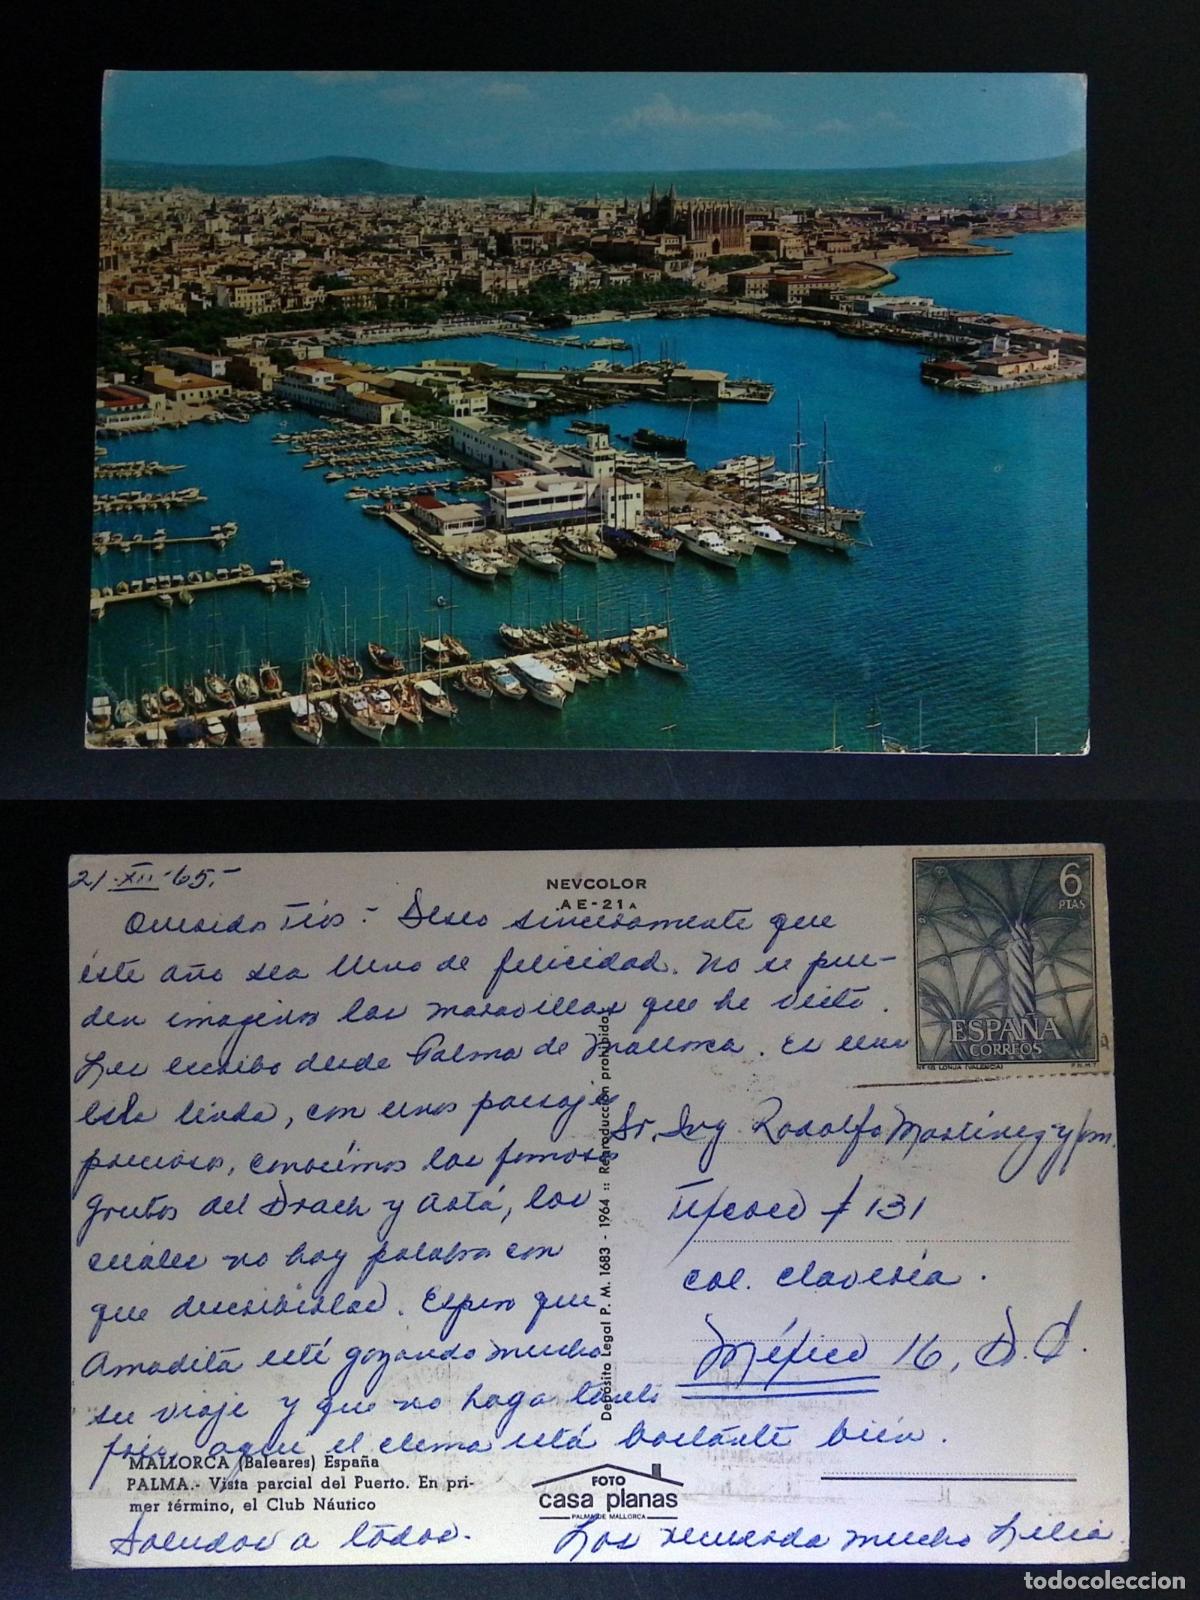 21-XII-65.-
NEVCOLOR
AE-21A
6
PTAS
ESPAÑA
CORREOS
LONJA (VALENCIA)
F.N.M.T.
Queridos Tíos - Deseo sinceramente que
éste año sea lleno de felicidad. No se pue-
den imaginos las maravillas que he visto.
Les escribo desde Palma de Mallorca. Es una
Isla linda, con unos paisajes
preciosos, conocimos las famosas
grutas del Drach y Artá, los
cuales no hay palabras con
que describirlas. Espero que
Amadita esté gozando mucho
su viaje y que no haga tanto
frío, aquí el clima está bastante bien.
Saludos a todos.
Los recuerda mucho Lilia
Sr. Ing Rodolfo Martínez y fam.
# 131
Col. Clavería.
México 16, D.F.
Depósito Legal P. M. 1683 - 1964 :: Reproducción prohibida
MALLORCA (Baleares) España
PALMA.- Vista parcial del Puerto. En pri-
mer término, el Club Náutico
FOTO
casa planas
PALMA DE MALLORCA
todocoleccion